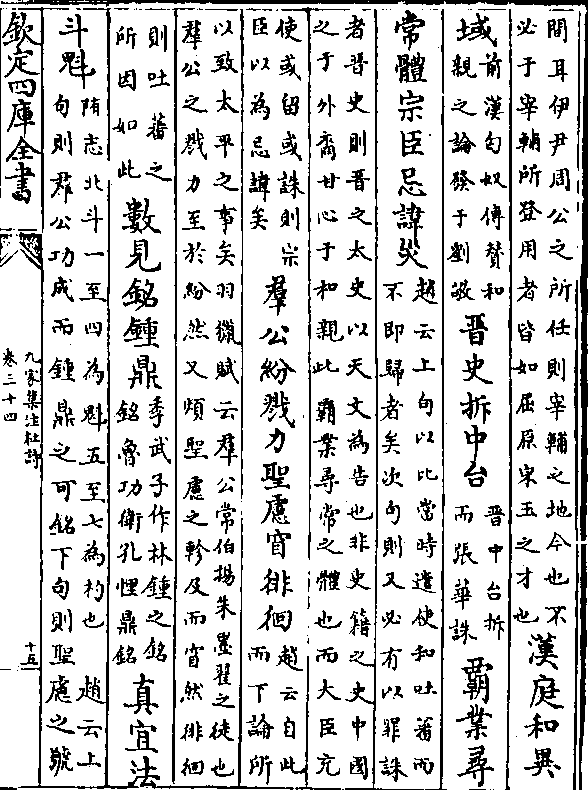 間耳伊尹周公之所任則宰輔之地今也不
必于宰輔所登用者皆如屈原宋玉之才也
漢庭和異
域
前漢匈奴傳贊和
親之論發于劉敬
晉史拆中台
晉中台拆
而張華誅
霸業尋
常體宗臣忌諱災
趙云上句以比當時遣使和吐蕃而
不即歸者矣次句則又必有以罪誅
者晉史則晉之太史以天文為告也非史籍之史中國
之于外裔甘心于和親此霸業尋常之體也而大臣充
使或留或誅則宗
臣以為忌諱矣
羣公紛戮力聖慮窅徘徊
趙云自此
而下論所
以致太平之事矣羽獵賦云羣公常伯揚朱墨翟之徒也
羣公之戮力至於紛然又煩聖慮之軫及而窅然徘徊
則吐蕃之
所因如此
數見銘鍾鼎
季武子作林鍾之銘
銘魯功衛孔悝鼎銘
真宜法
斗魁
隋志北斗一至四為魁五至七為杓也趙云上
句則羣公功成而鍾鼎之可銘下句則聖慮之號
欽定四庫全書
九家集注杜詩
卷三十四
十五